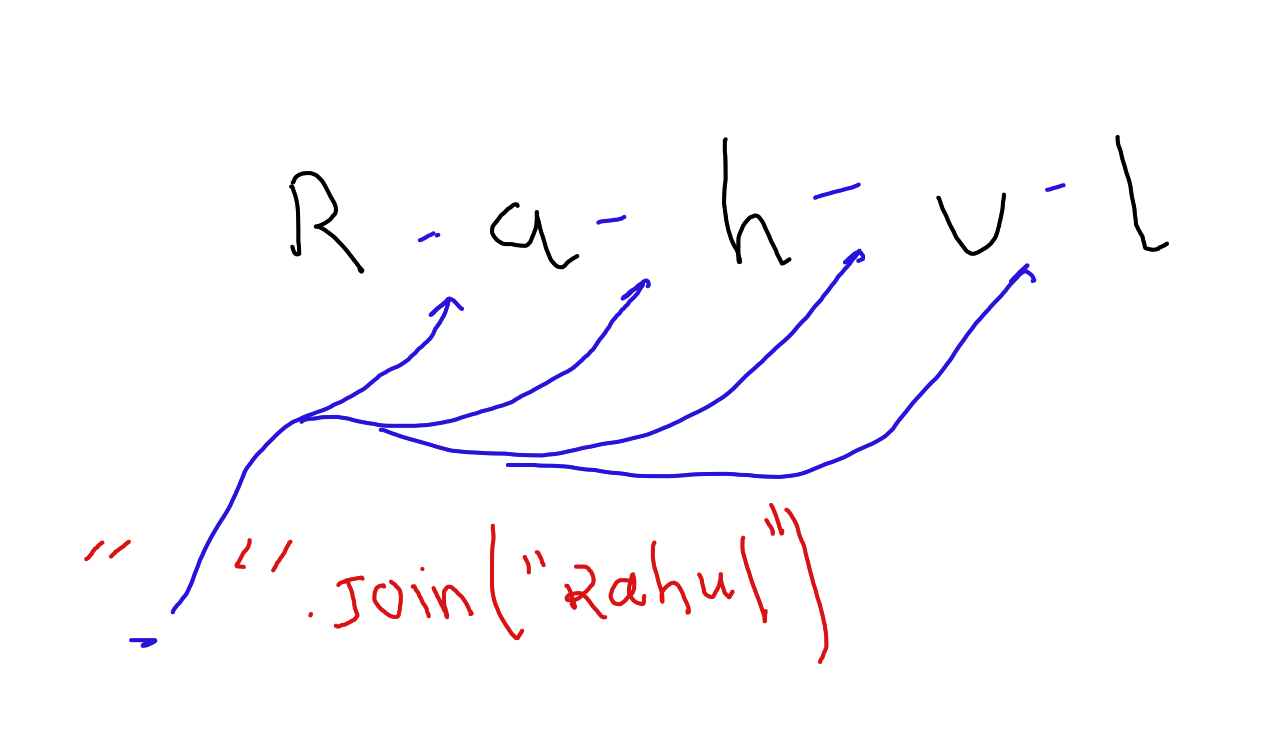 R - a - h - u - l
"-".Join("Rahul")